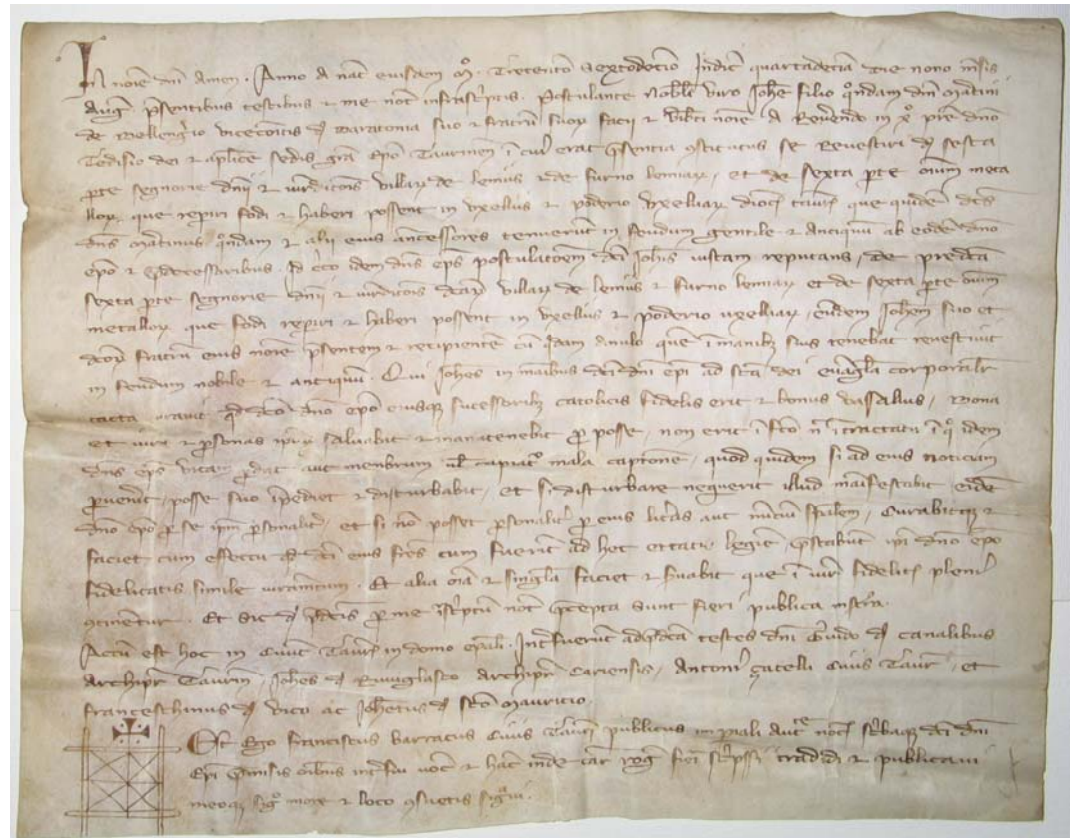 In noie dni Amen. Anno a nat eiusdem mº. Trecenteo sextodecio Indic quartadecia die nono mensis
Aug. psentibus testibus & me not infrascptis. Postulante Nobile viro Johe filio qndam dni
de vicecoitis suo & fratru suor facii & noie A Reuendo in x pre dno
Tedisio dei & aplice sedis gra epo Taurinen i cui erat psentia ostitutus se Reuestiri d sexta
pte segnorie dnii & iurdicois villar de lemius & de furno lemiar, et de sexta pte oium meta
llor que repiri fodi & haberi possent in vxellus & poderio vxelliar dioc taur que quide dcs
dns qndam & alii eius ancessores tenuerut in feudum gentile & anciquu ab eode dno
epo & pdecessoribus. Id eco idem dns eps postulacoem dci Johis iustam reputans, de predca
sexta pte segnorie dnii & iurdicois dcar villar de lemius & furno lemiar et de sexta pte oium
metallor que fodi repiri & haberi possent in vxellus & poderio uxelliar, eudem Johem suo et
dcor fratru eius noie psentem & recipiente cu qdam anulo que i manibz suis tenebat reuestiuit
in feudum nobile & antiquu. Qui Johes in maibus dci dni epi ad sca dei euagla corporalr
tacta iurauit qd dco dno epo eiusqz sucessoribz catolicis fidelis erit & bonus vassallus, bona
et iura & psonas ipor saluabit & manutenebit p posse, non erit i fco n i tractatu i q idem
dns eps vitam pdat aut menbrum ul capiat mala captone, quod quidem si ad eius noticiam
puenit, posse suo ipediet & disturbabit, et si disturbare nequerit illud maifestabit eide
dno epo p se ipm psonalit, et si no posset psonalit p eius litas aut nuciu spalem, Curabitqz &
faciet cum effectu qd dci eius fres cum fuerit ad hec etatis legie pstabut ipi dno epo
fidelitatis simile iuramtum. Et alia oia & singla faciet & suabit que i iure fidelit pleni
otinetur. Et sic d pdcis p me iscptu not pcepta sunt fieri publica instra.
Actu est hoc in Ciuit Taur in domo epali. Intfuerut ad pdca testes dni Guido d canalibus
Archipr Taurin, Johes d Archipr Cariensis, Antoni çucelli Ciuis Taur, et
franceschinus d vico ac Johetus d sco Mauricio.
Et Ego franciscus barracus Ciuis Taur publicus impiali aucte not scbaqz dci dni
Epi pmissis oibus intfui uoc & hac inde car rog fieri scpssi tradidi & publicaui
meoqz sigo more & loco osuetis sigaui.